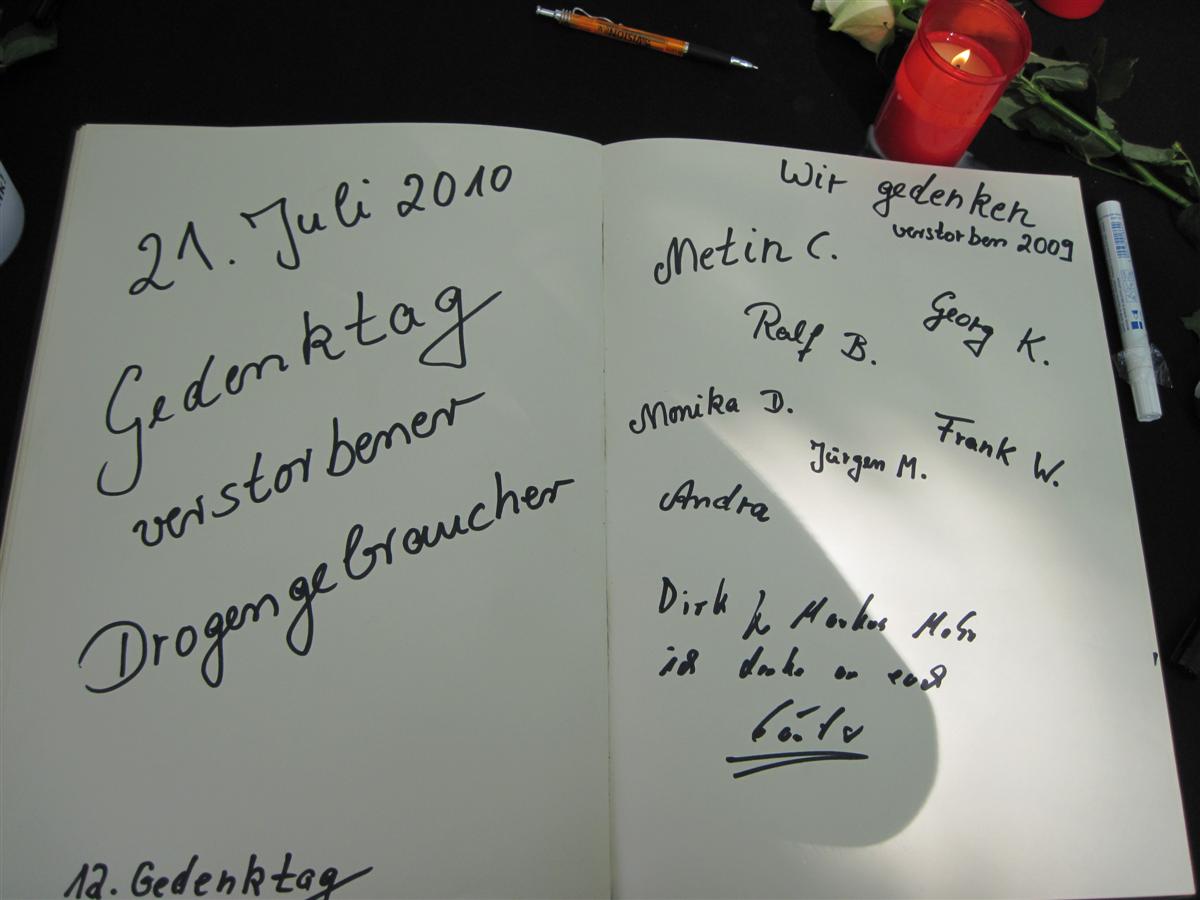 21. Juli 2010
Gedenktag
verstorbener
Drogengebraucher
12. Gedenktag
Wir gedenken
verstorben 2009
Metin C.
Georg K.
Ralf B.
Monika D.
Frank W.
Jürgen M.
Andra
Dirk Markus
ich denke an euch